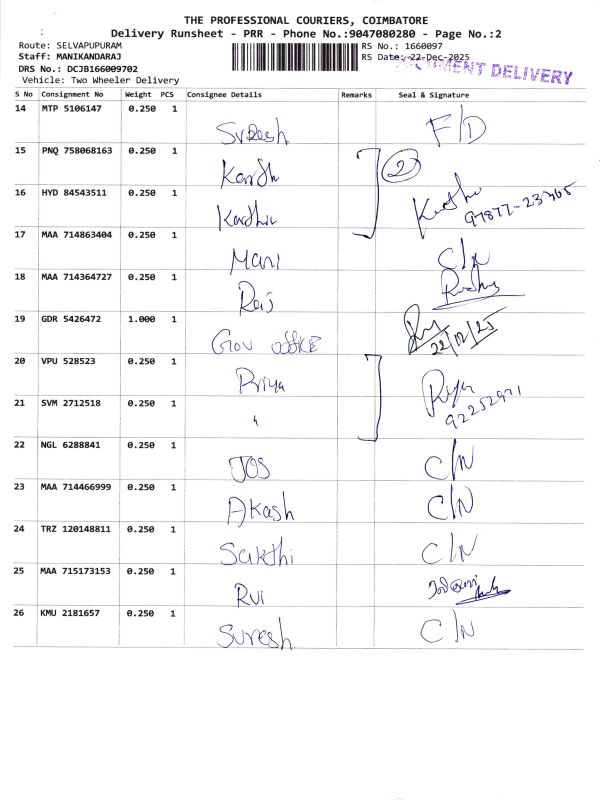 THE PROFESSIONAL COURIERS, COIMBATORE
Delivery Runsheet - PRR - Phone No.:9047080280 - Page No.:2
Route: SELVAPUPURAM
RS No.: 1660097
Staff: MANIKANDARAJ
RS Date: 22-Dec-2025
DRS No.: DCJB166009702
DELIVERY
Vehicle: Two Wheeler Delivery
S No Consignment No Weight PCS Consignee Details Remarks Seal & Signature
14 MTP 5106147 0.250 1 Suresh F/D
15 PNQ 758068163 0.250 1 2
16 HYD 84543511 0.250 1
17 MAA 714863404 0.250 1 Mani C/N
18 MAA 714364727 0.250 1 Raj
19 GDR 5426472 1.000 1 Gov office 22/12/25
20 VPU 528523 0.250 1 Priya Priya
21 SVM 2712518 0.250 1 "
22 NGL 6288841 0.250 1 JOS C/N
23 MAA 714466999 0.250 1 Akash C/N
24 TRZ 120148811 0.250 1 Sakthi C/N
25 MAA 715173153 0.250 1
26 KMU 2181657 0.250 1 Suresh C/N